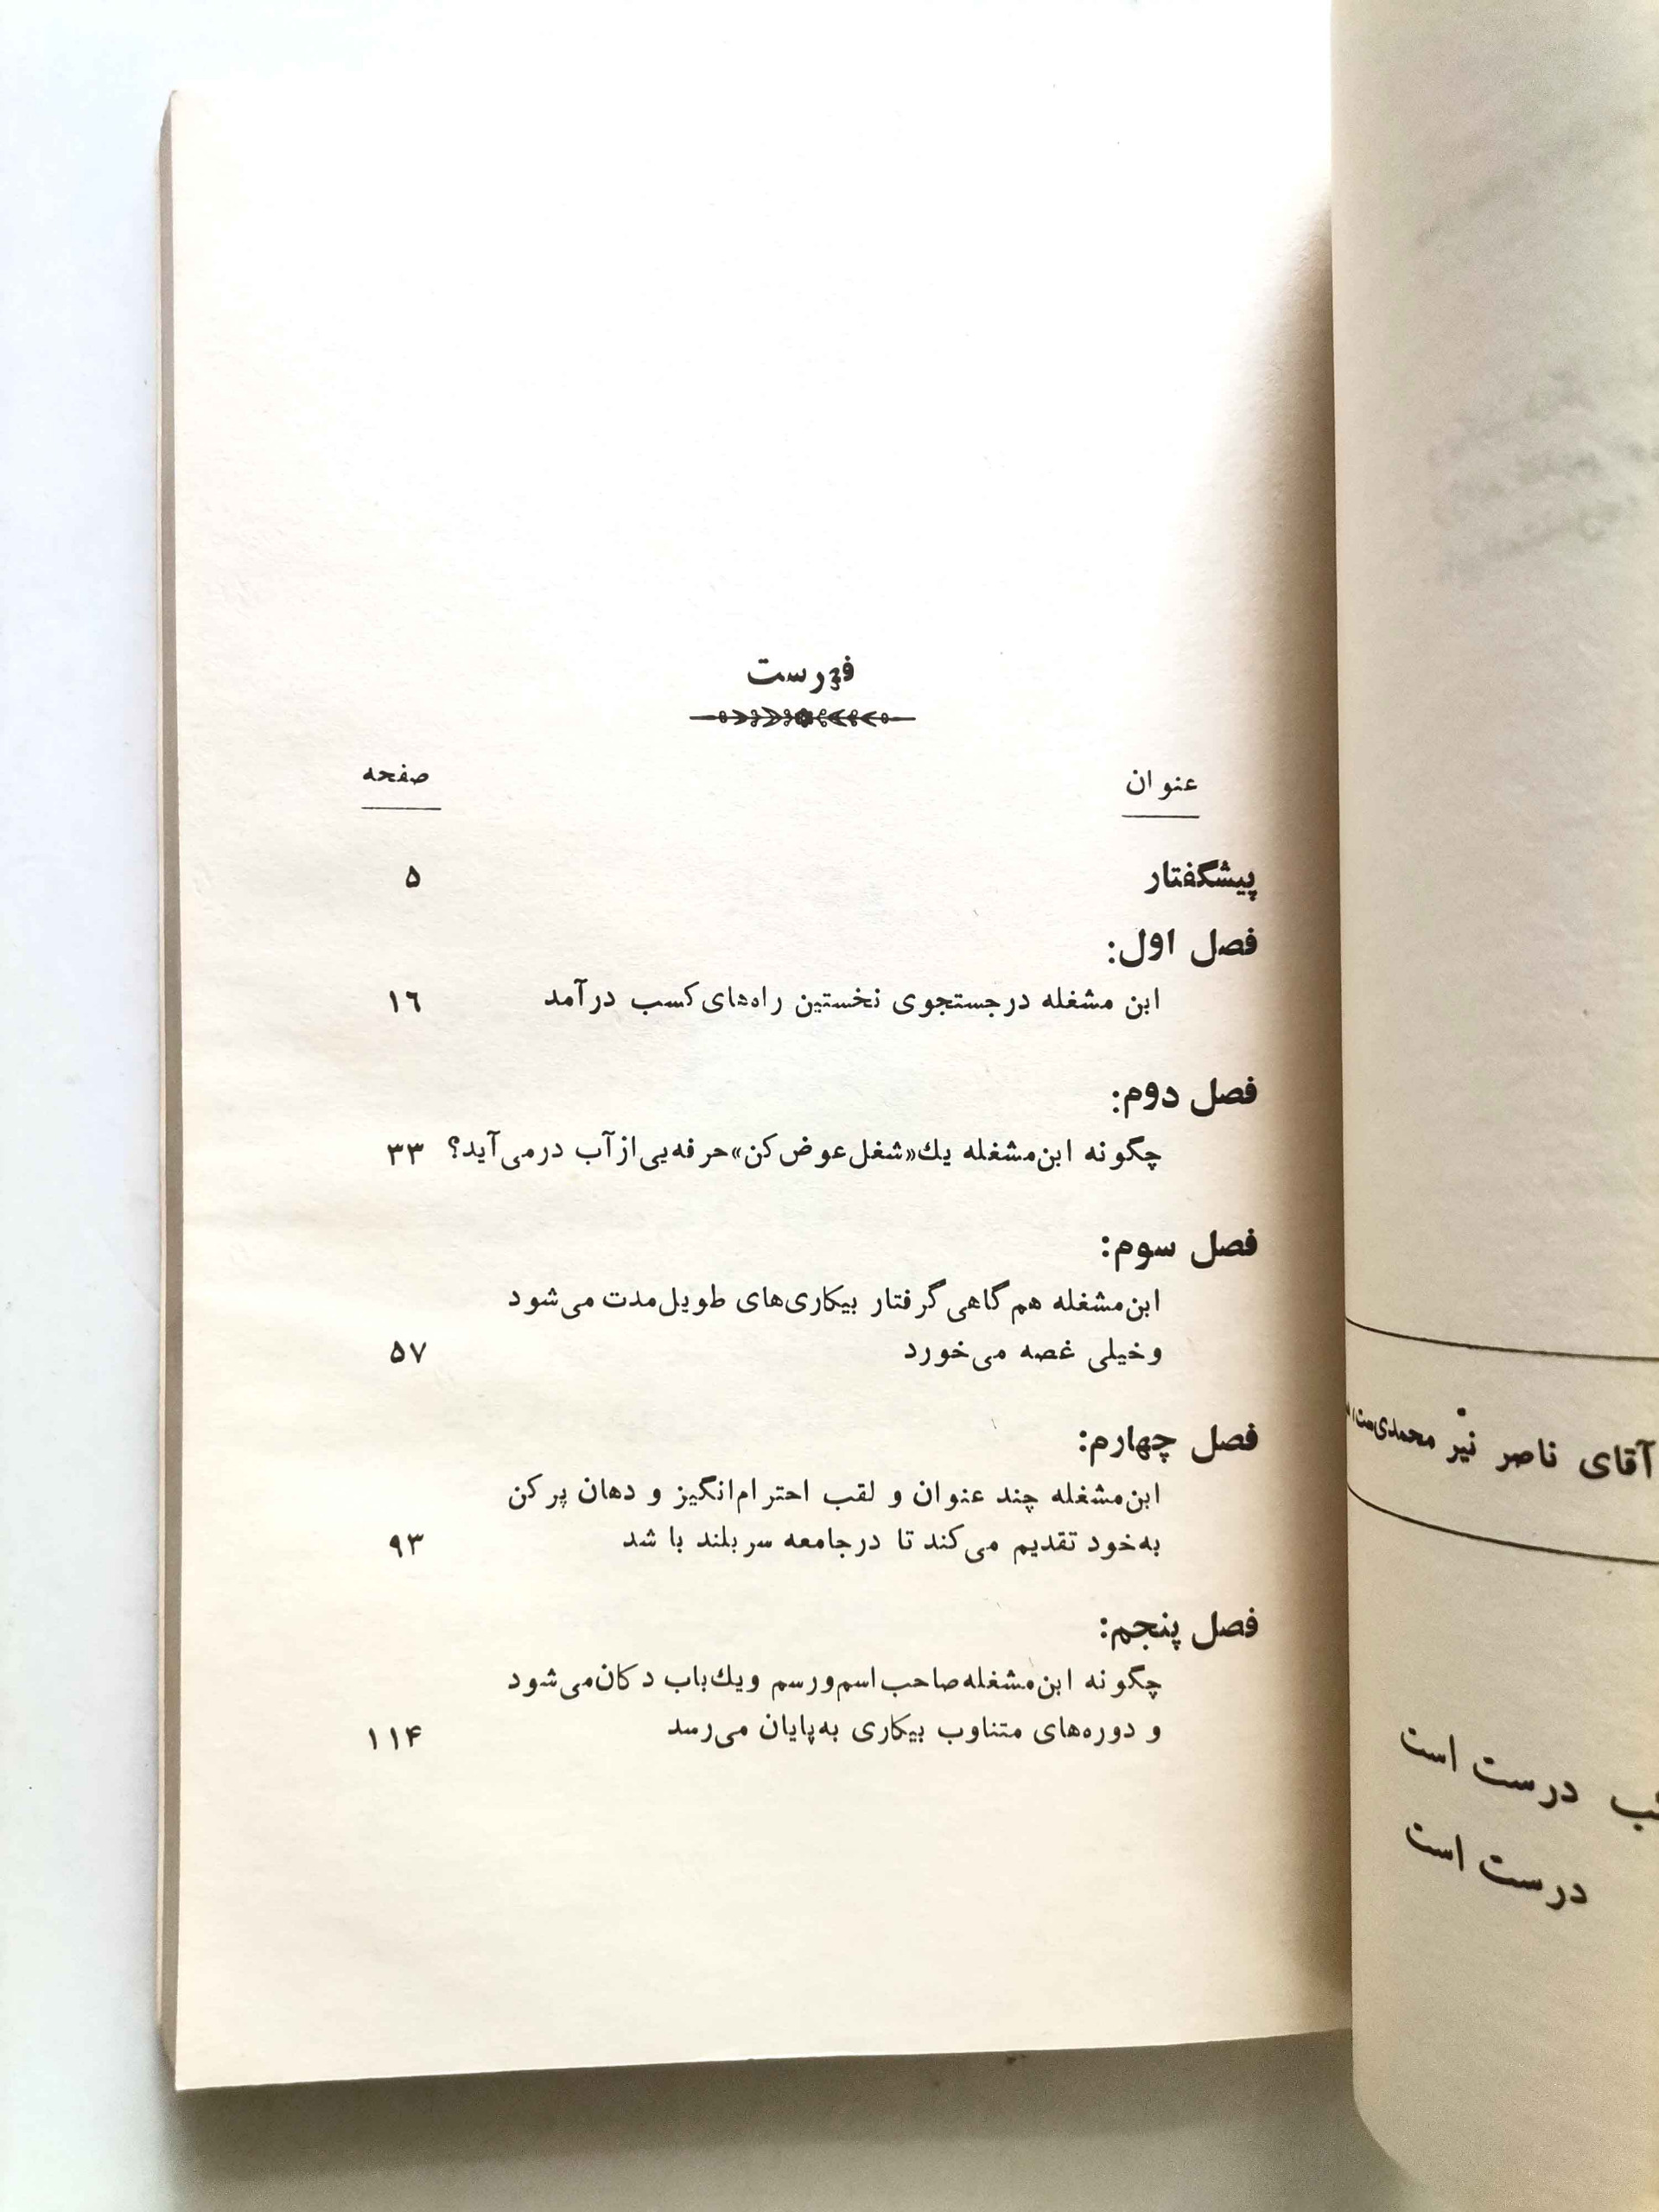 فهرست
عنوان صفحه
پیشگفتار ۵
فصل اول:
ابن مشغله درجستجوی نخستین راه‌های کسب درآمد ۱۶
فصل دوم:
چگونه ابن‌مشغله یك «شغل‌عوض‌کن» حرفه‌یی از آب درمی‌آید؟ ۳۳
فصل سوم:
ابن‌مشغله هم گاهی گرفتار بیکاری‌های طویل‌مدت می‌شود
وخیلی غصه می‌خورد ۵۷
فصل چهارم:
ابن‌مشغله چند عنوان و لقب احترام‌انگیز و دهان پرکن
به‌خود تقدیم می‌کند تا درجامعه سربلند باشد ۹۳
فصل پنجم:
چگونه ابن‌مشغله صاحب اسم‌ورسم ویك‌باب دکان‌می‌شود
و دوره‌های متناوب بیکاری به‌پایان می‌رسد ۱۱۴
آقای ناصر نیّر محمدی
درست است
درست است